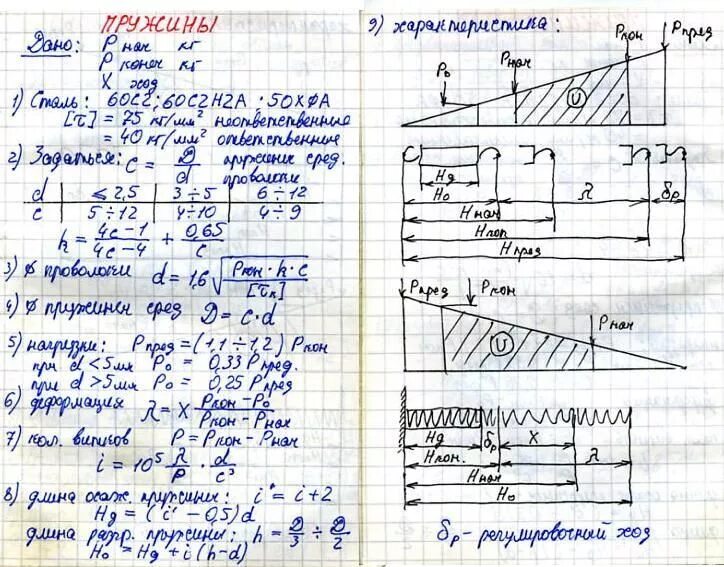 ПРУЖИНЫ
Дано: Pнач кг
Pконеч кг
X ход
1) Сталь: 60С2; 60С2Н2А; 50ХФА
[τ] = 75 кг/мм² неответственные
= 40 кг/мм² ответственные
2) Задаться: c = D/d пружины сред. проволоки
d | ≤ 2,5 | 3÷5 | 6÷12
c | 5÷12 | 4÷10 | 4÷9
k = (4c-1)/(4c-4) + 0,65/c
3) ϕ проволоки d = 1,6 √(Pкон·k·c/[τк])
4) ϕ пружинен сред D = c·d
5) нагрузки: Pпред = (1,1÷1,2) Pкон
при d < 5мм P₀ = 0,33 Pпред.
при d > 5мм P₀ = 0,25 Pпред
6) деформация λ = X (Pкон - P₀)/(Pкон - Pнач)
7) кол. витков P = Pкон - Pнач
i = 10⁵ λ/P · d/c³
8) длина сжат. пружины: i' = i + 2
Hд = (i' - 0,5)d
длина разжр. пружины: h = D/3 ÷ D/2
H₀ = Hд + i(h-d)
9) характеристика:
P₀ Pнач Pкон Pпред
U
Hд
H₀ λ δр
Hнач
Hкон
Hпред
Pпред Pкон
Pнач
U
Hд δр X
Hкон. λ
Hнач
H₀
δр - регулировочный ход